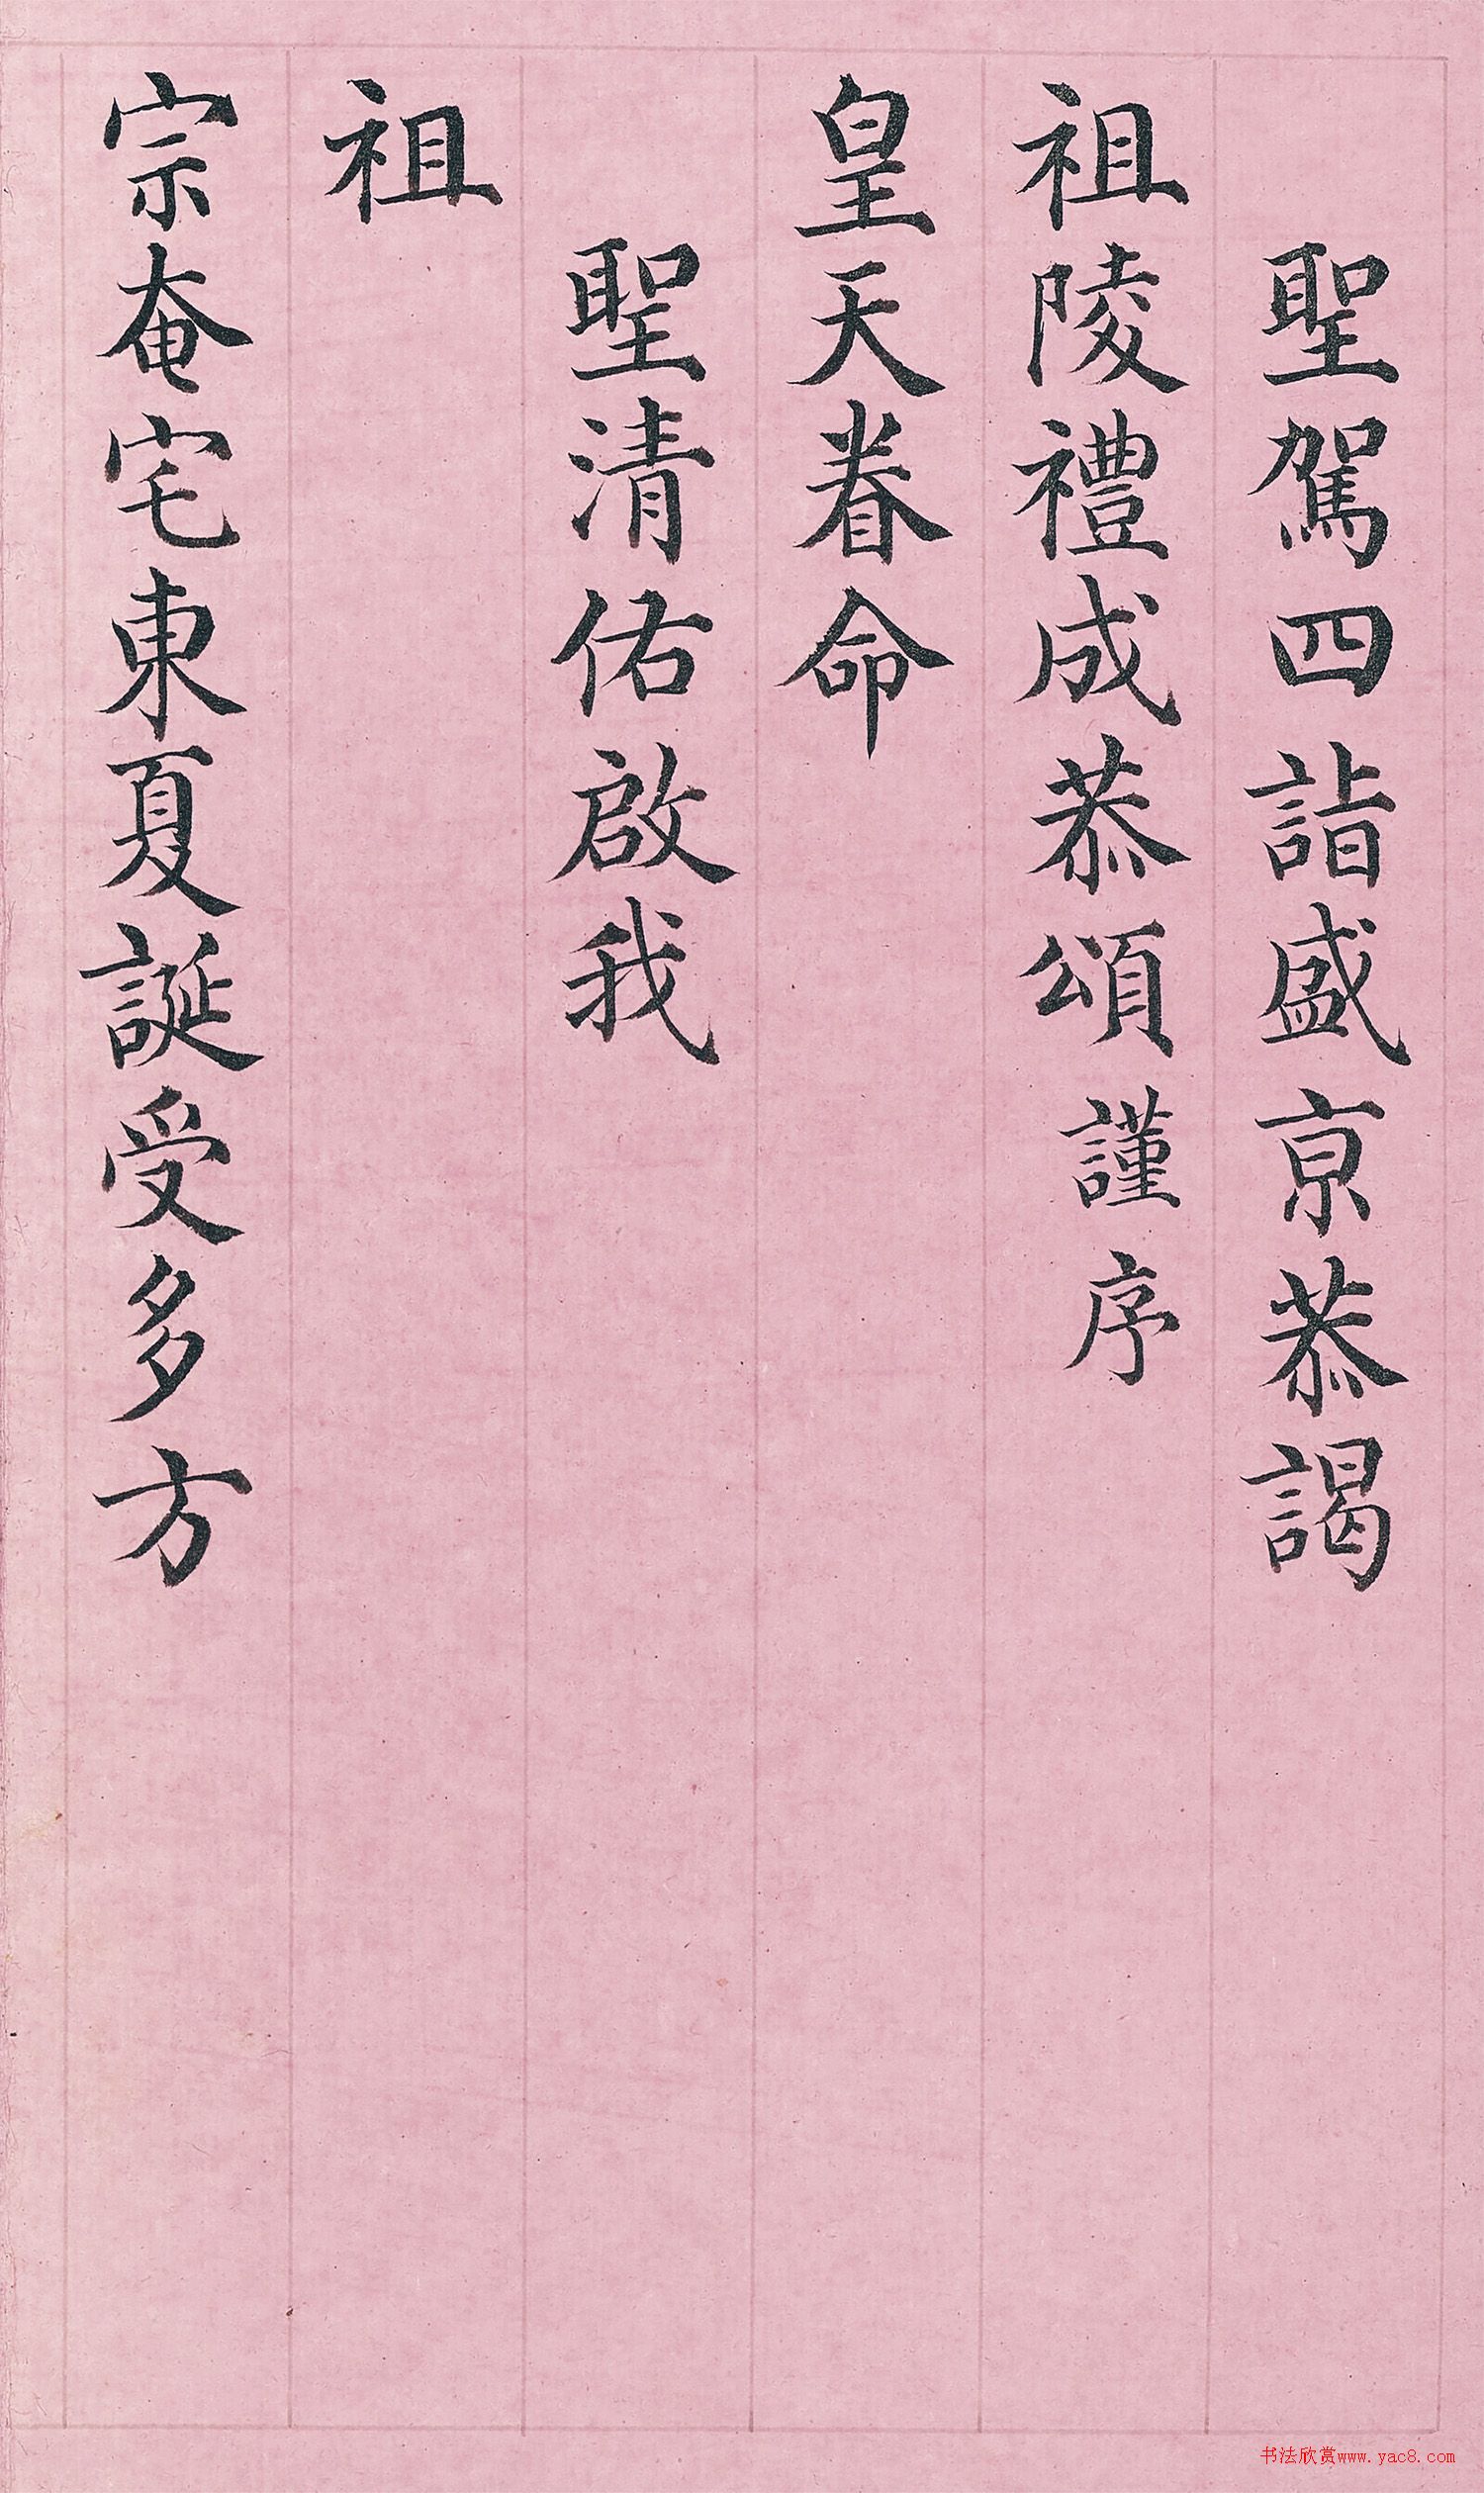 聖駕四詣盛京恭謁
祖陵禮成恭頌謹序
皇天眷命
聖清佑啟我
祖
宗奄宅東夏誕受多方
书法欣赏www.yac8.com